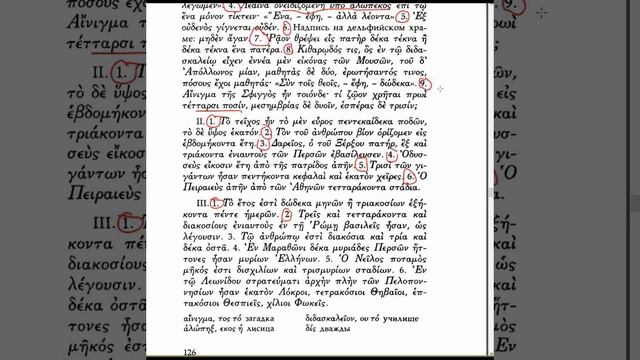 λέγωμεν». 4. Λέαινα ὀνειδιζομένη ὑπὸ ἀλώπεκος ἐπὶ τῷ
ἕνα μόνον τίκτειν· «Ἕνα, – ἔφη, – ἀλλὰ λέοντα». 5. Ἐξ
οὐδενὸς γίγνεται οὐδέν. 6. Надпись на дельфийском хра-
ме: μηδὲν ἄγαν. 7. Ῥᾷον θρέψει εἷς πατὴρ δέκα τέκνα ἢ
δέκα τέκνα ἕνα πατέρα. 8. Κιθαρῳδός τις, ὃς ἐν τῷ διδα-
σκαλείῳ εἶχεν ἐννέα μὲν εἰκόνας τῶν Μουσῶν, τοῦ δ'
Ἀπόλλωνος μίαν, μαθητὰς δὲ δύο, ἐρωτήσαντός τινος,
πόσους ἔχοι μαθητάς· «Σὺν τοῖς θεοῖς, – ἔφη, – δώδεκα». 9.
Αἴνιγμα τῆς Σφιγγὸς ἦν τοιόνδε· τί ζῷον χρῆται πρωὶ
τέτταρσι ποσίν, μεσημβρίας δὲ δυοῖν, ἑσπέρας δὲ τρισίν;
II. 1. Τὸ τεῖχος ἦν τὸ μὲν εὖρος πεντεκαίδεκα ποδῶν,
τὸ δὲ ὕψος ἑκατόν. 2. Τὸν τοῦ ἀνθρώπου βίον ὁρίζομεν εἰς
ἑβδομήκοντα ἔτη. 3. Δαρεῖος, ὁ τοῦ Ξέρξου πατήρ, ἓξ καὶ
τριάκοντα ἐνιαυτοὺς τῶν Περσῶν ἐβασίλευσεν. 4. Ὀδυσ-
σεὺς εἴκοσιν ἔτη ἀπὸ τῆς πατρίδος ἀπῆν. 5. Τρισὶ τῶν γι-
γάντων ἦσαν πεντήκοντα κεφαλαὶ καὶ ἑκατὸν χεῖρες. 6. Ὁ
Πειραιεὺς ἀπῆν ἀπὸ τῶν Ἀθηνῶν τετταράκοντα στάδια.
III. 1. Τὸ ἔτος ἐστὶ δώδεκα μηνῶν ἢ τριακοσίων ἑξή-
κοντα πέντε ἡμερῶν. 2. Τρεῖς καὶ τετταράκοντα καὶ
διακοσίους ἐνιαυτοὺς ἐν τῇ Ῥώμῃ βασιλεῖς ἦσαν, ὡς
λέγουσιν. 3. Τῷ ἀνθρώπῳ ἐστὶ διακόσια καὶ τρία καὶ
δέκα ὀστᾶ. 4. Ἐν Μαραθῶνι δέκα μυριάδες Περσῶν ἥτ-
τονες ἦσαν μυρίων Ἑλλήνων. 5. Ὁ Νεῖλος ποταμὸς
μῆκός ἐστι δισχιλίων καὶ τρισμυρίων σταδίων. 6. Ἐν
τῷ Λεωνίδου στρατεύματι ἀρχὴν πλὴν τῶν Πελοπον-
νησίων ἦσαν ἑκατὸν Λόκροι, τετρακόσιοι Θηβαῖοι, ἑπ-
τακόσιοι Θεσπιεῖς, χίλιοι Φωκεῖς.
αἴνιγμα, τος τό загадка
διδασκαλεῖον, ου τό училище
ἀλώπηξ, εκος ἡ лисица
δίς дважды
126